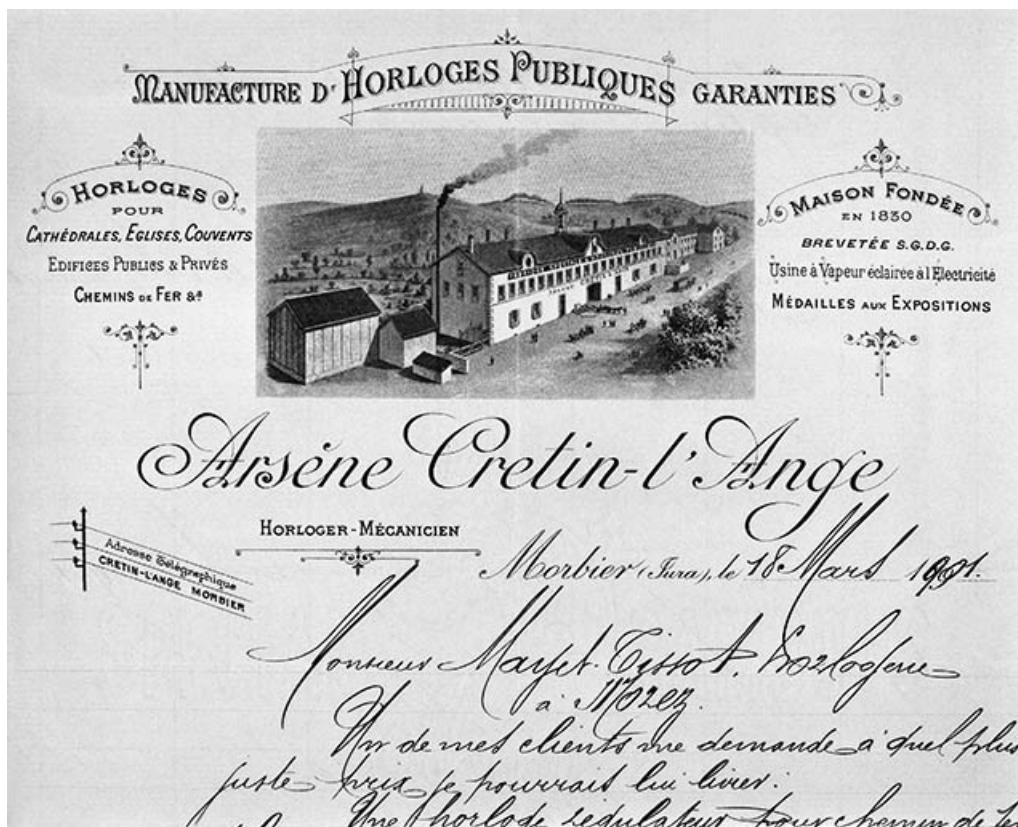 MANUFACTURE D'HORLOGES PUBLIQUES GARANTIES
HORLOGES
POUR
CATHÉDRALES, EGLISES, COUVENTS
EDIFICES PUBLICS & PRIVÉS
CHEMINS DE FER &a
MAISON FONDÉE
EN 1830
BREVETÉE S.G.D.G.
Usine à Vapeur éclairée à l'Electricité
MÉDAILLES AUX EXPOSITIONS
Arsène Cretin-l'Ange
HORLOGER-MÉCANICIEN
Adresse Télégraphique
CRETIN-L'ANGE MORBIER
Morbier (Jura), le 18 Mars 1901.
Monsieur Mayet-Tissot, horlogerie
à Morez.
Un de mes clients me demande à quel plus
juste prix je pourrais lui livrer:
Une horloge régulateur pour chemin de fer